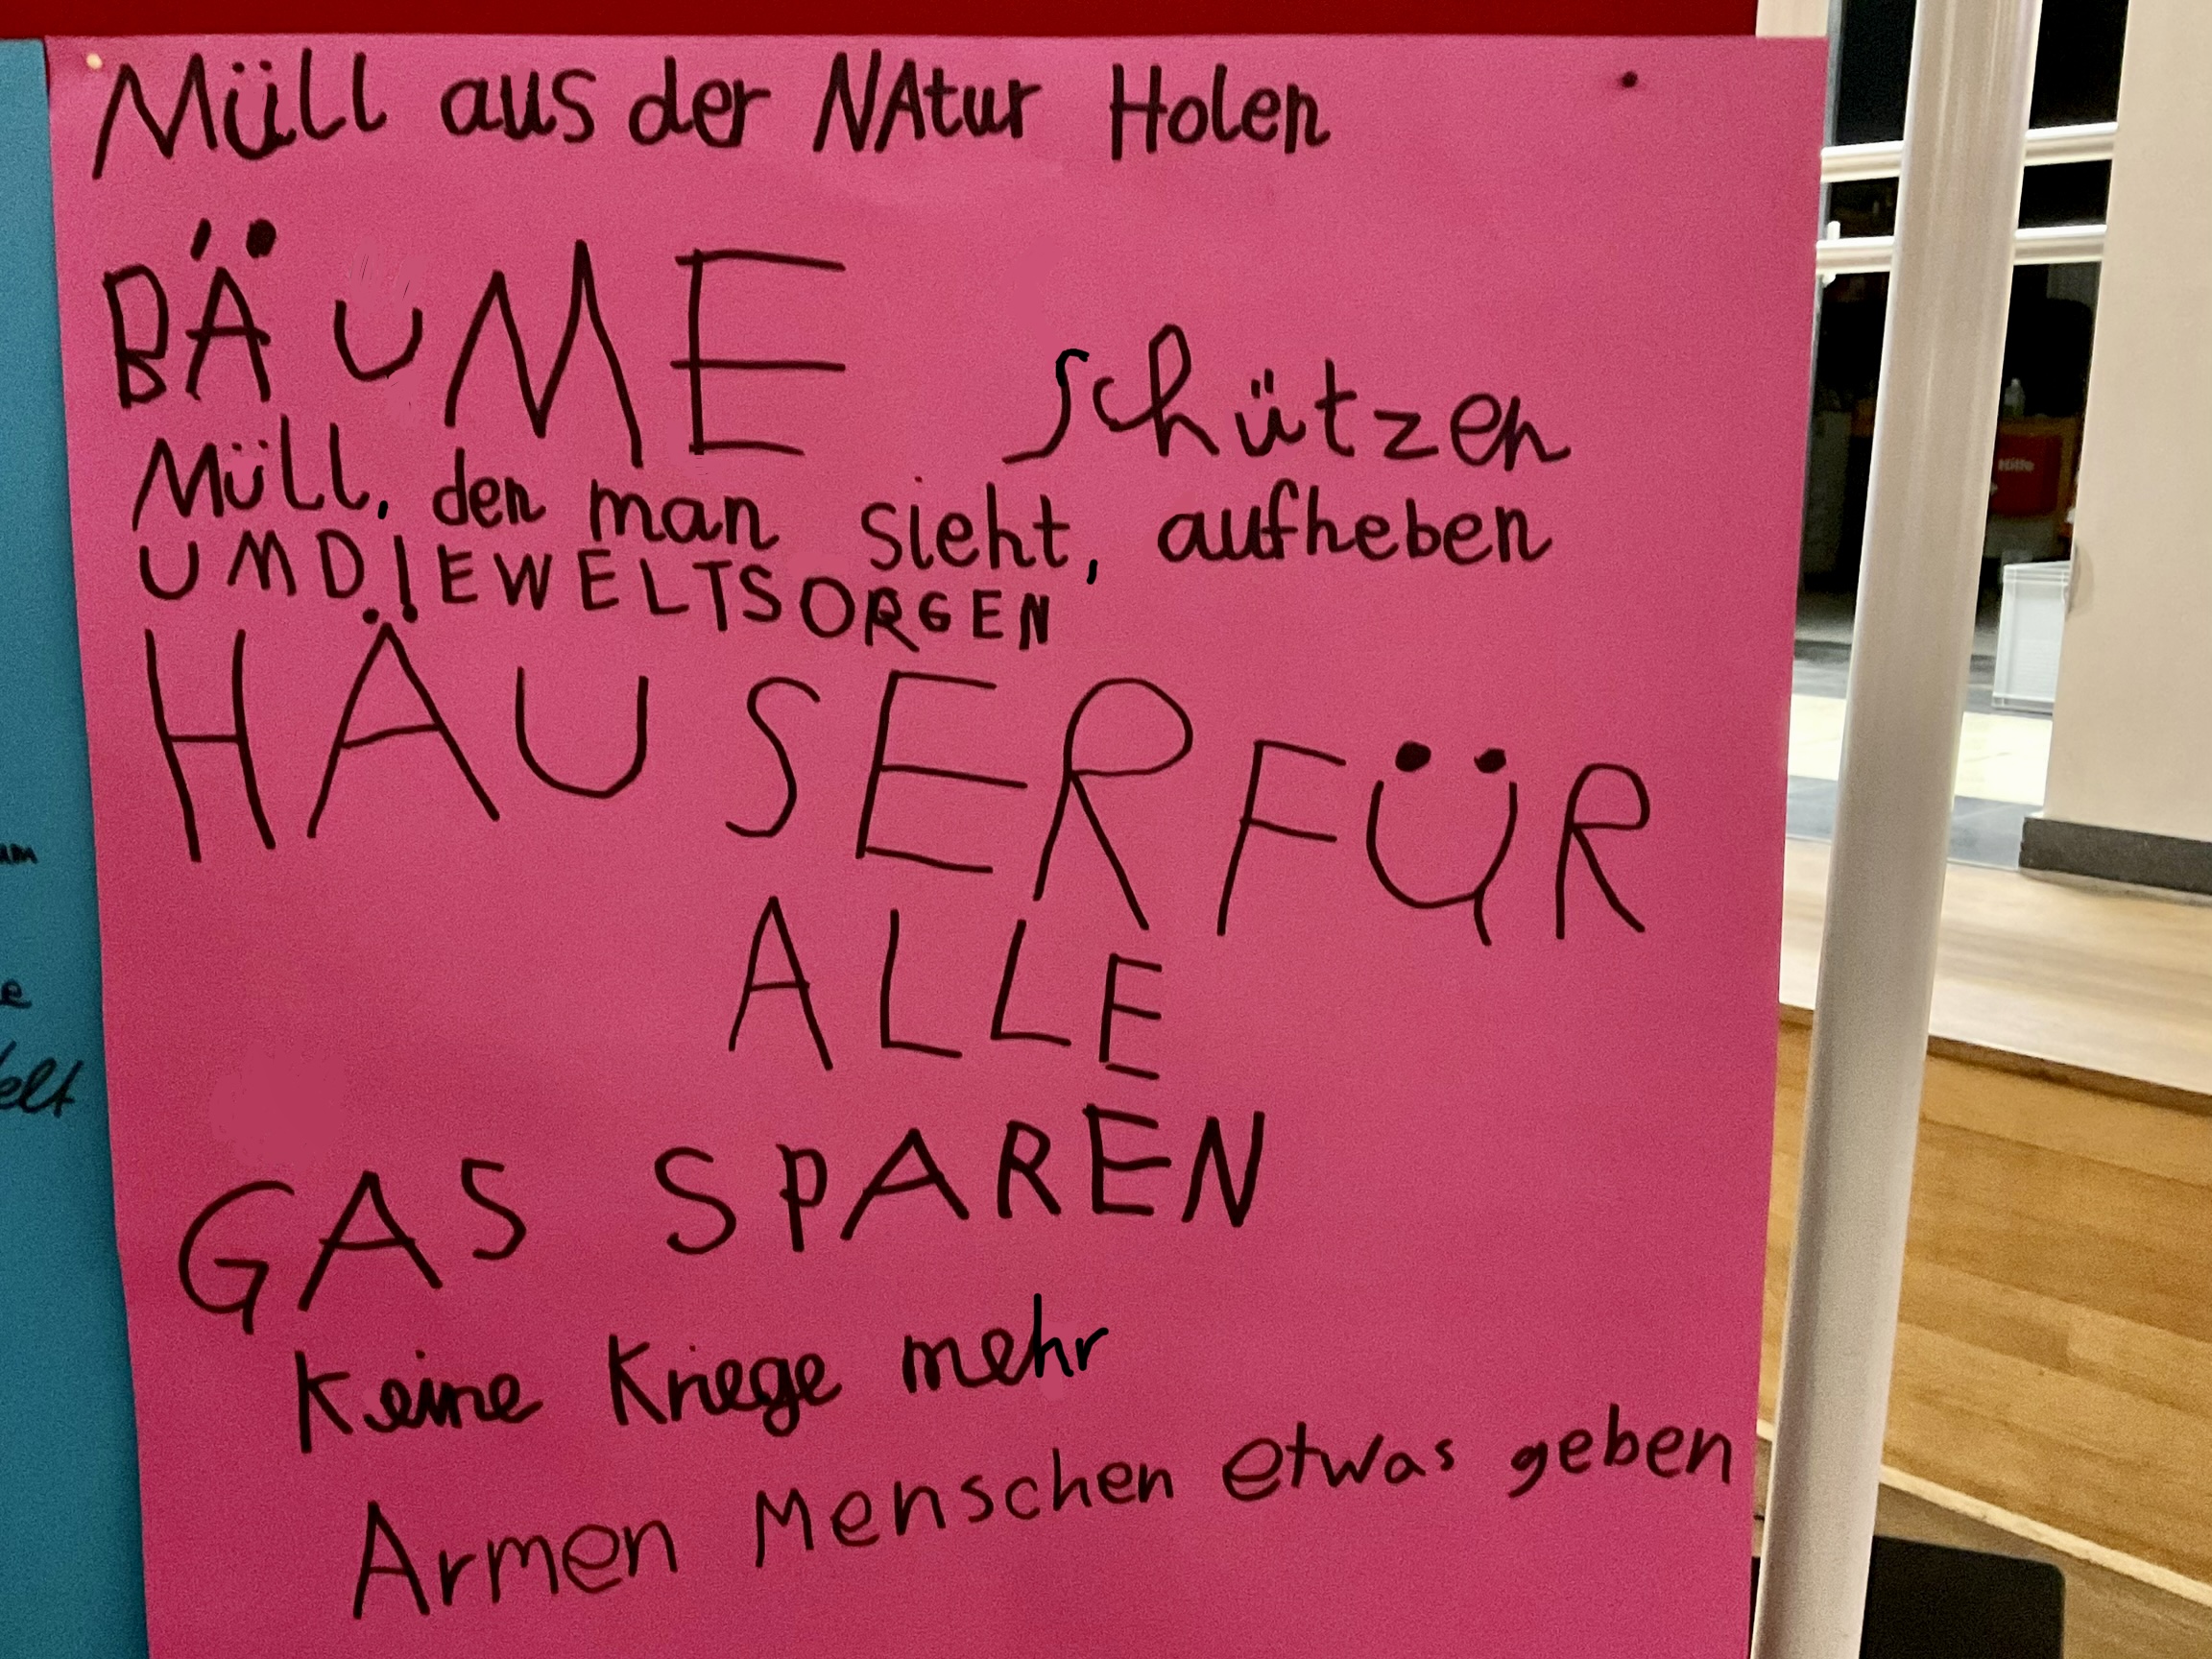 Müll aus der NAtur Holen
BÄUME schützen
Müll, den man sieht, aufheben
UMDIEWELTSORGEN
HÄUSER FÜR
ALLE
GAS SPAREN
Keine Kriege mehr
Armen Menschen etwas geben
um
e
elt
Hilfe